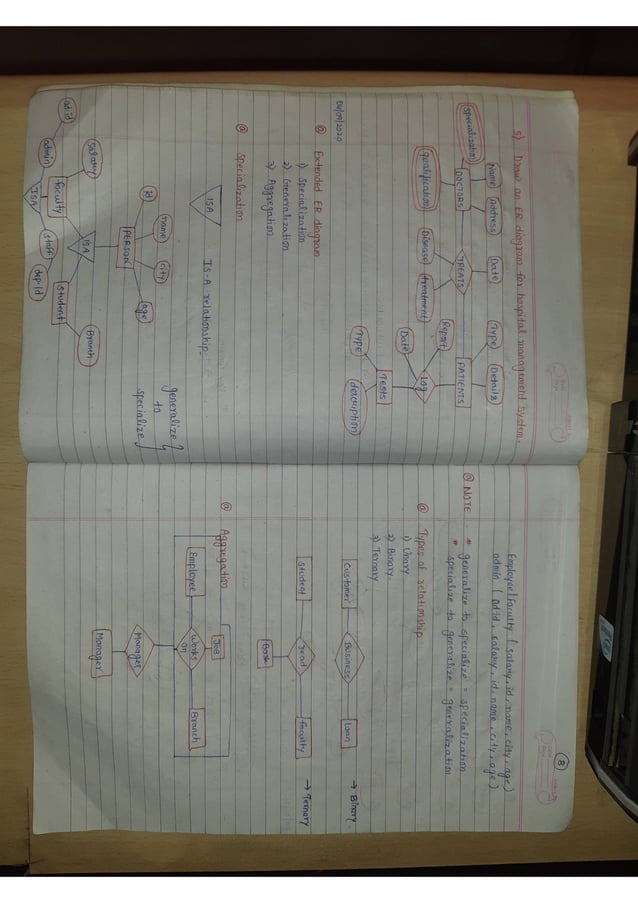 5) Draw an ER diagram for hospital management system.
Name
Address
Date
Type
Details
specialization
DOCTORS
TREATS
PATIENTS
qualification
Disease
treatment
Report
Date
Log
Type
Tests
description
04/09/2020
@ Extended ER diagram
1) Specialization
2) Generalization
3) Aggregation
ISA
IS-A relationship.
@ Specialization
id
name
city
age
PERSON
generalize
to
specialize
ISA
salary
Faculty
Student
Branch
ISA
ad.id
admin
staff
dep.id
8
Employee/Faculty (salary, id, name, city, age)
admin (Ad.id, salary, id, name, city, age)
@ NOTE - * generalize to specialize = specialization
* specialize to generalize = generalization
@ Types of relationship
1) Unary
2) Binary
3) Ternary
Customer
Business
Loan
→ Binary
Student
read
Faculty
→ Ternary
Book
@ Aggregation
Job
Employee
works
on
Branch
Manager
Manager